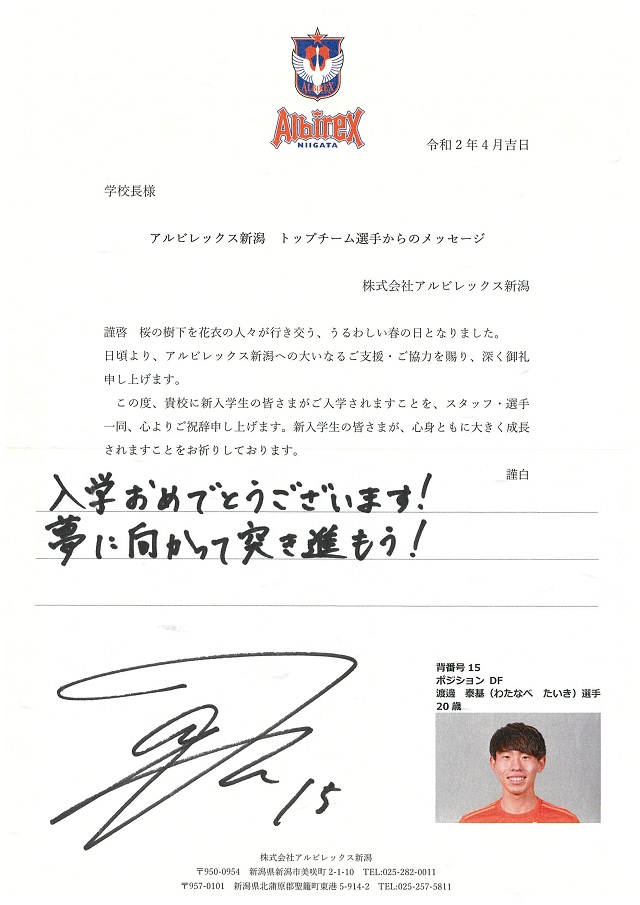 ALBIREX
AlbireX
NIIGATA
令和2年4月吉日
学校長様
アルビレックス新潟　トップチーム選手からのメッセージ
株式会社アルビレックス新潟
謹啓　桜の樹下を花衣の人々が行き交う、うるわしい春の日となりました。
日頃より、アルビレックス新潟への大いなるご支援・ご協力を賜り、深く御礼
申し上げます。
　この度、貴校に新入学生の皆さまがご入学されますことを、スタッフ・選手
一同、心よりご祝辞申し上げます。新入学生の皆さまが、心身ともに大きく成長
されますことをお祈りしております。
謹白
入学おめでとうございます!
夢に向かって突き進もう!
背番号15
ポジション DF
渡邊　泰基（わたなべ　たいき）選手
20歳
15
株式会社アルビレックス新潟
〒950-0954　新潟県新潟市美咲町2-1-10　TEL:025-282-0011
〒957-0101　新潟県北蒲原郡聖籠町東港5-914-2　TEL:025-257-5811